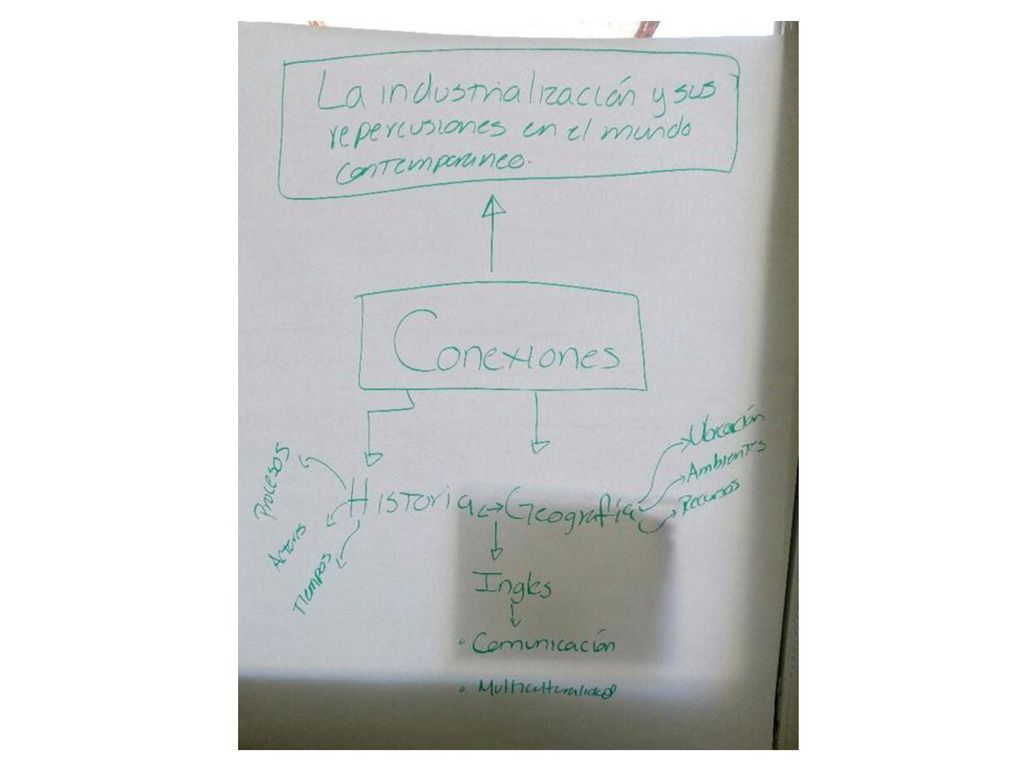 La industrialización y sus
repercusiones en el mundo
contemporaneo.
Conexiones
Historia ↔ Geografía
Procesos
Actores
Tiempos
Ubicación
Ambientes
Recursos
Ingles
• Comunicación
• Multiculturalidad